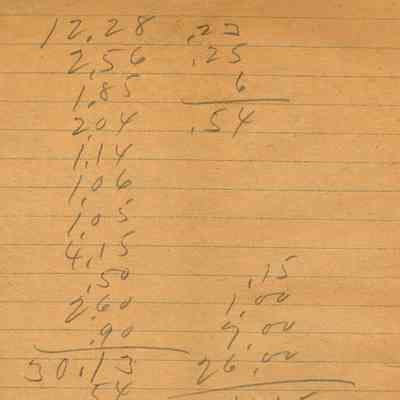 12.28 .23
2.56 .25
1.85 6
2.04 .54
1.14
1.06
1.05
4.15
.50 .15
2.60 1.00
.90 9.00
30.13 26.00
54